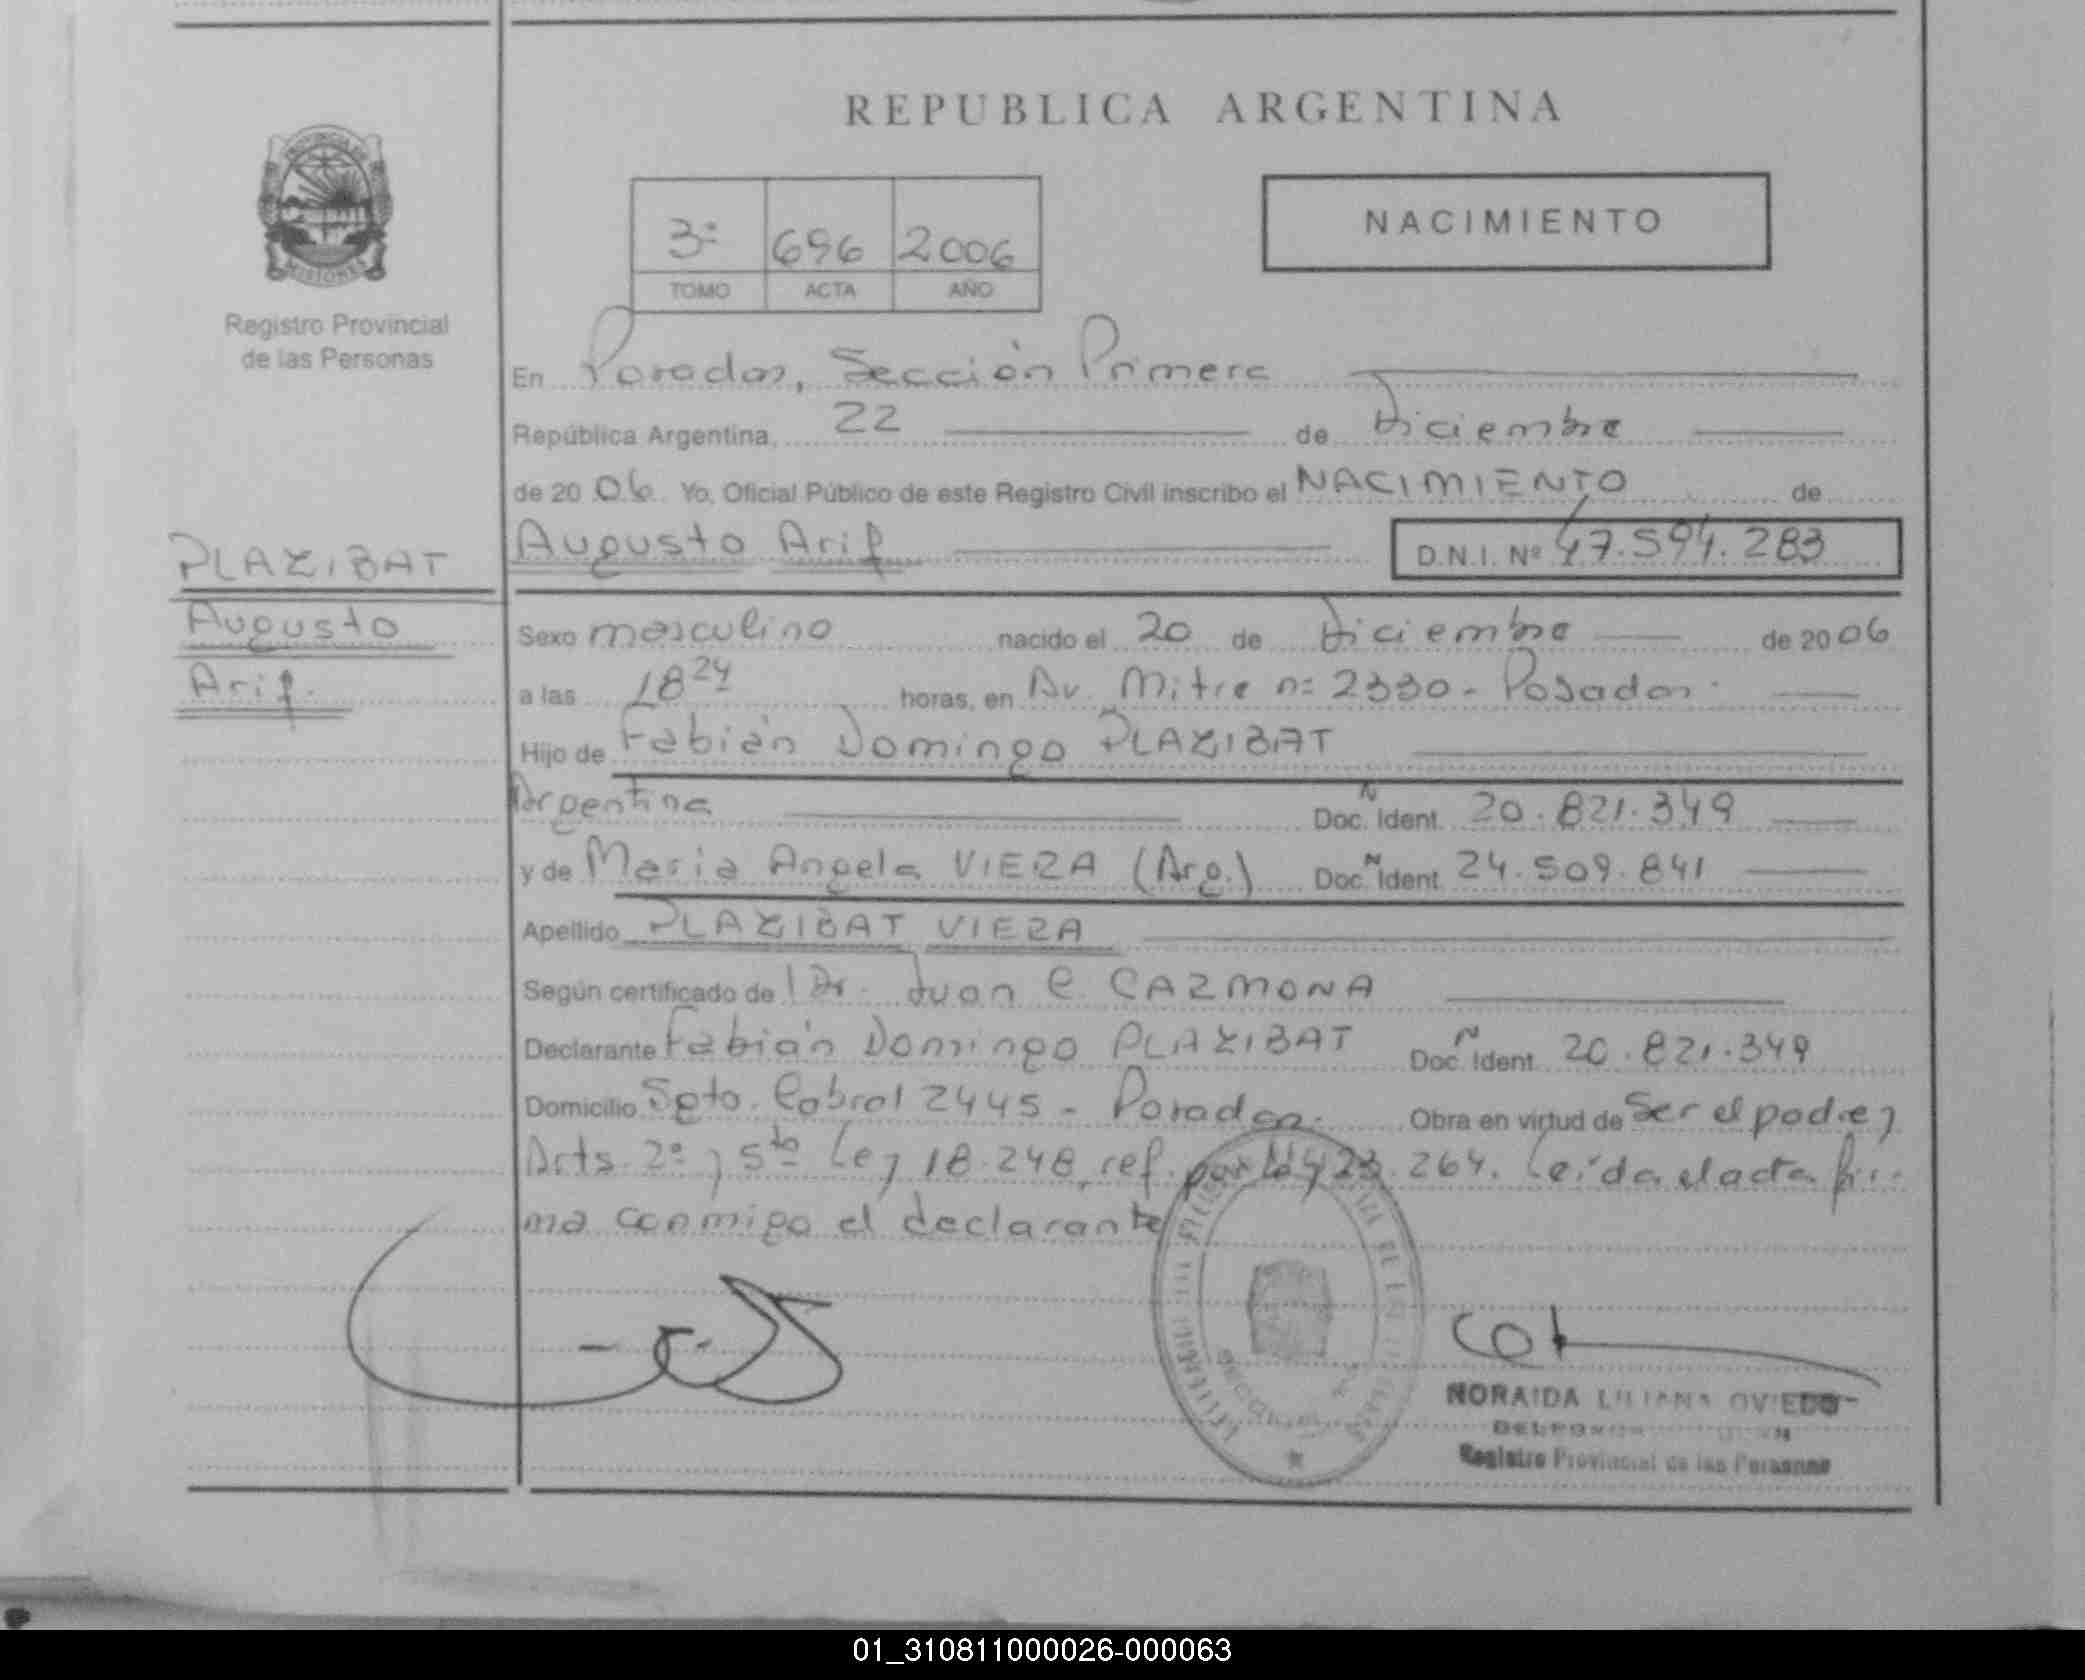 REPUBLICA ARGENTINA
PROVINCIA DE
MISIONES
Registro Provincial
de las Personas
3º 696 2006
TOMO ACTA AÑO
NACIMIENTO
En Posadas, Sección Primera
República Argentina, 22 de Diciembre
de 20 06 Yo, Oficial Público de este Registro Civil inscribo el NACIMIENTO de
PLAZIBAT
Augusto Arif D.N.I. Nº 47.594.283
Augusto
Sexo masculino nacido el 20 de Diciembre de 20 06
Arif.
a las 18 24 horas, en Av. Mitre nº 2330 - Posadas
Hijo de Fabián Domingo PLAZIBAT
Argentina Doc. Ident. 20.821.349
y de Maria Angela VIERA (Arg.) Doc. Ident. 24.509.841
Apellido PLAZIBAT VIERA
Según certificado de Dr. Juan C. CARMONA
Declarante Fabián Domingo PLAZIBAT Doc. Ident. 20.821.349
Domicilio Sgto. Cabral 2445 - Posadas. Obra en virtud de Ser el padre y
Arts. 2º y 5to Ley 18.248, ref. por ley 23.264. Leída el acta fir-
ma conmigo el declarante
NORAIDA LILIANA OVIEDO
Registro Provincial de las Personas
01_310811000026-000063